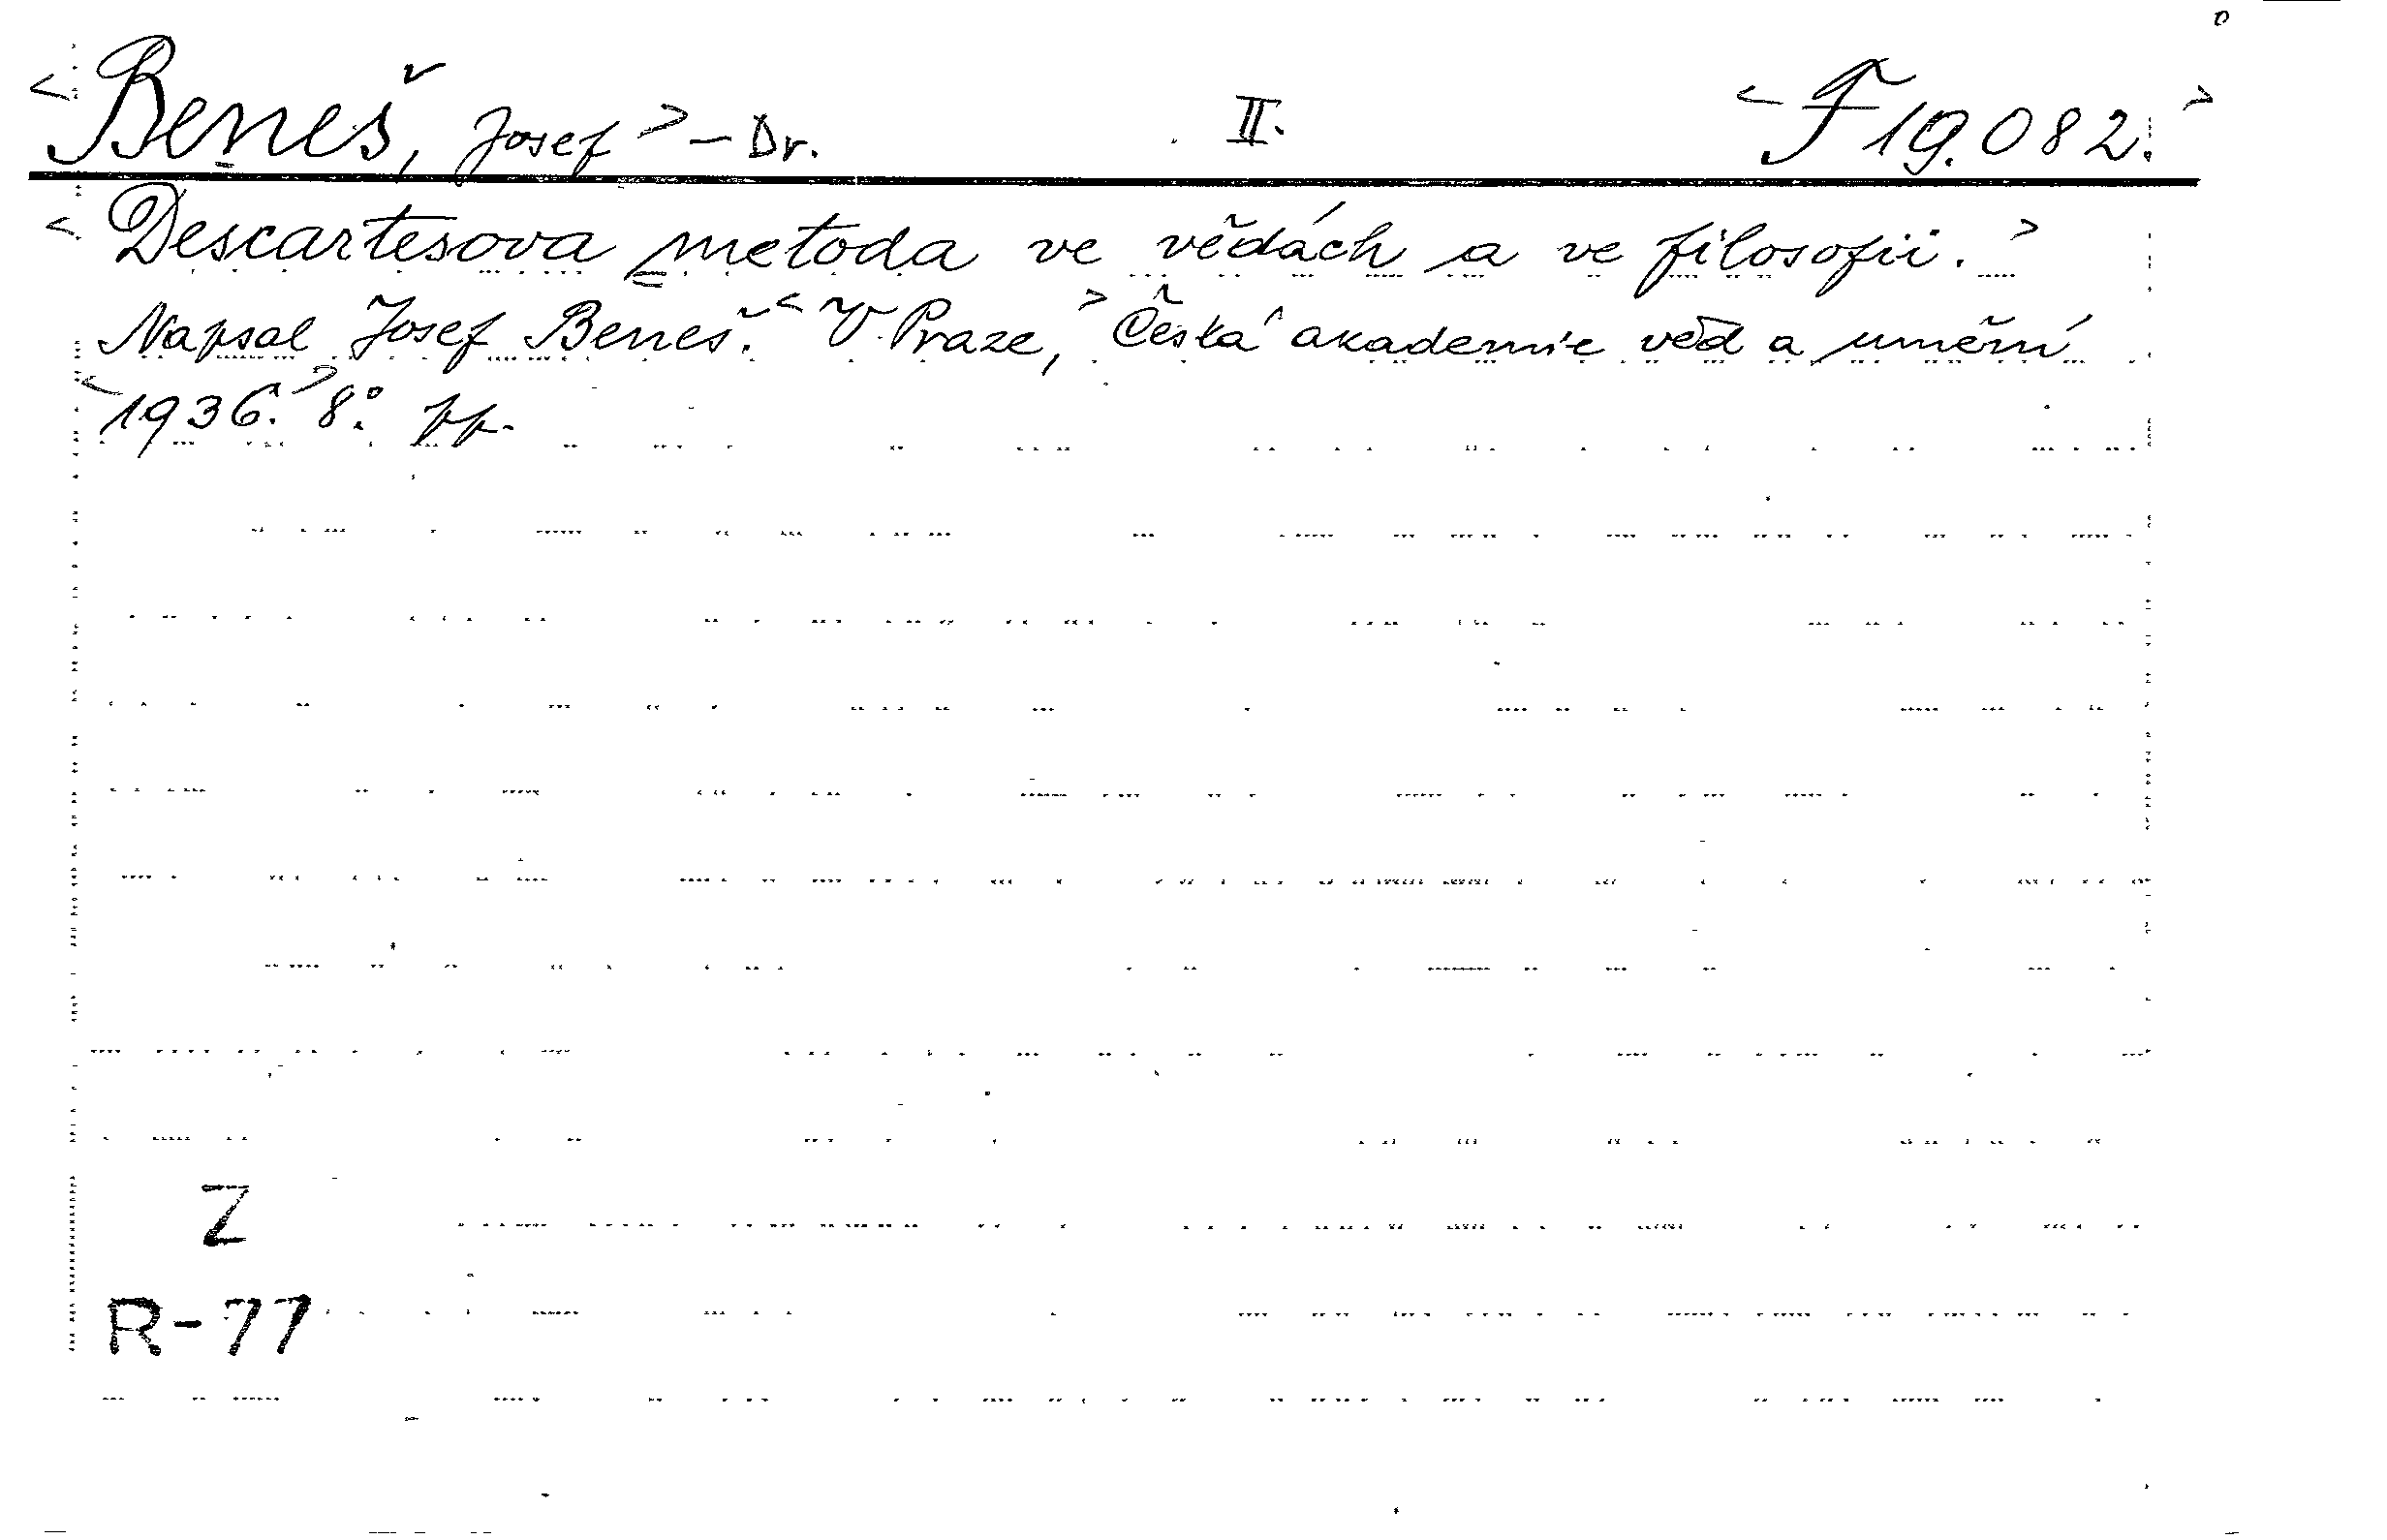 <Beneš, Josef> - Dr. II. <F 19.082.>
<Descartesova metoda ve vědách a ve filosofii.>
Napsal Josef Beneš. <V Praze,> Česká akademie věd a umění
<1936.> 8°. pp.
Z
R-77